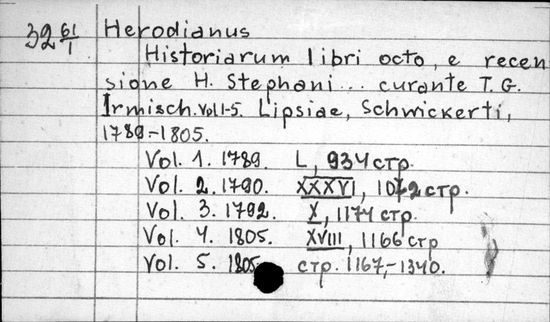 32 61/1
Herodianus
Historiarum libri octo, e recen
sione H. Stephani... curante T. G.
Irmisch. Vol 1-5. Lipsiae, Schwickerti,
1789-1805.
Vol. 1. 1789. L, 934 стр.
Vol. 2. 1790. XXXVI, 1072 стр.
Vol. 3. 1792. X, 1174 стр.
Vol. 4. 1805. XVIII, 1166 стр
Vol. 5. 1805 стр. 1167,-1340.